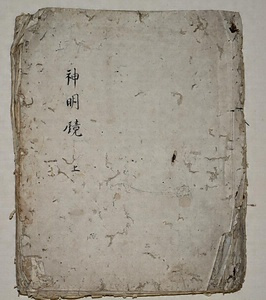 神明鏡 上